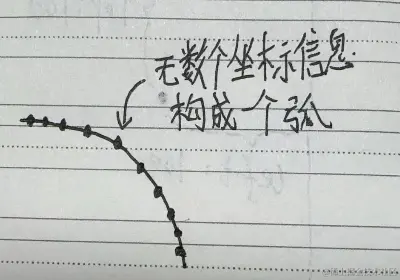 无数个坐标信息
构成一个弧